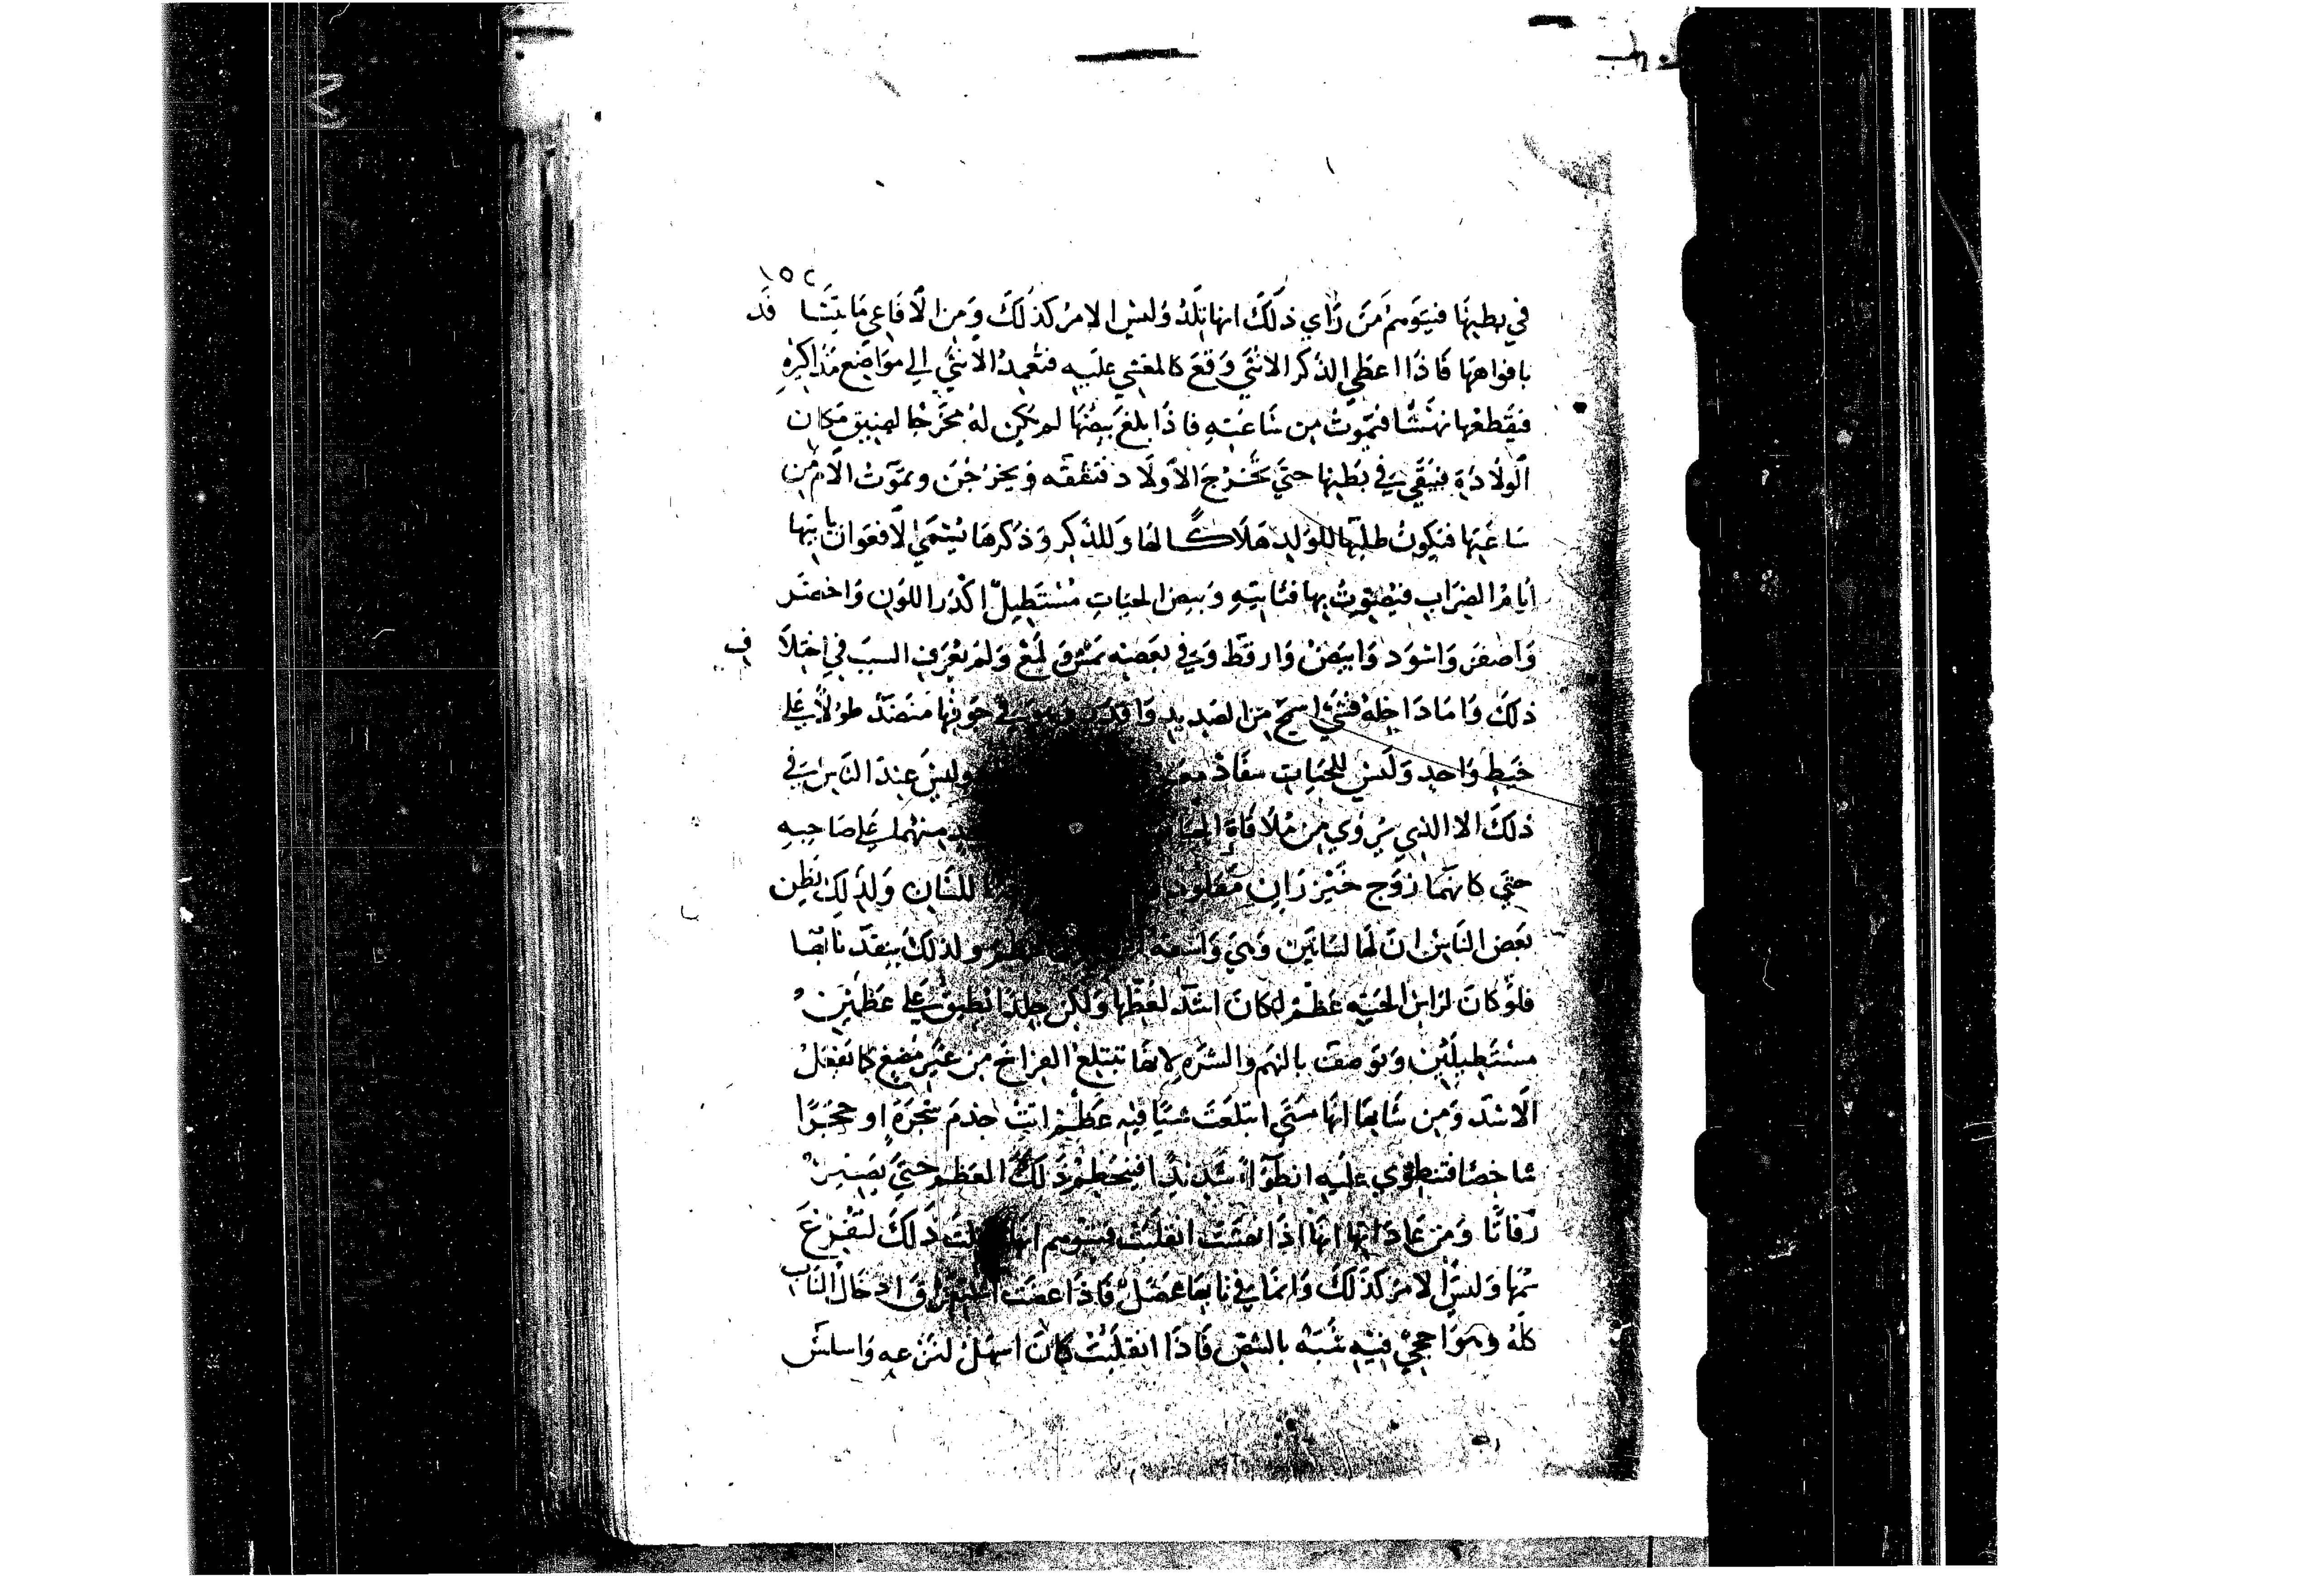 ١٥٢
في بطنها فيتوهم من راي ذلك انها تلد وليس الامر كذلك ومن الافاعي ما يتسافد
بافواهها فاذا اعطي الذكر الانثي وقع كالمغشي عليه فتعمد الانثي الي مواضع مذاكره
فتقطعها نهشا فيموت من ساعته فاذا بلغ بيضها لم يكن له مخرجا لضيق مكان
الولادة فيبقي في بطنها حتي تخرج الاولاد فتنقفه ويخرجن وتموت الام من
ساعتها فيكون طلبها للولد هلاكا لها وللذكر وذكرها يسمي الافعوان ياتيها
ايام الضراب فيصوت بها فتاتيه وبيض الحيات مستطيل اكدر اللون واخضر
واصفر واسود وابيض وارقط وفي بعضه نمش ولمع ولم يعرف السبب في اختلاف
ذلك واما داخله فشي اسمج من الصديد واقذر وهو في جوفها منضد طولا علي
خيط واحد وليس للحيات سفاد وليس عند الناس في
ذلك الا الذي يروي من ملاقاة منهما علي صاحبه
حتي كانهما زوج خيزران مفتول للسان ولذلك يظن
بعض الناس ان لها لسانين وهي واسعة ولذلك ينفذ نابها
فلو كان لراس الحية عظم لكان اشد لعضها ولكن جلد انطبق علي عظمين
مستطيلين وتوصف بالنهم والشره لانها تبتلع الفراخ من غير مضغ كما تفعل
الاسد ومن شانها انها متي ابتلعت شيا فيه عظم اتت جذم شجرة او حجرا
شاخصا فتنطوي عليه انطوا شديدا فيتحطم ذلك العظم حتي يصير
رفاتا ومن عاداتها انها اذا نهشت انقلبت فيتوهم انها فعلت ذلك لتفرغ
سمها وليس الامر كذلك وانما في نابها عصل فاذا عضت ادخال الناب
كله وهو احجن فيه شبه بالشص فاذا انقلبت كان اسهل لنزعه واسلس